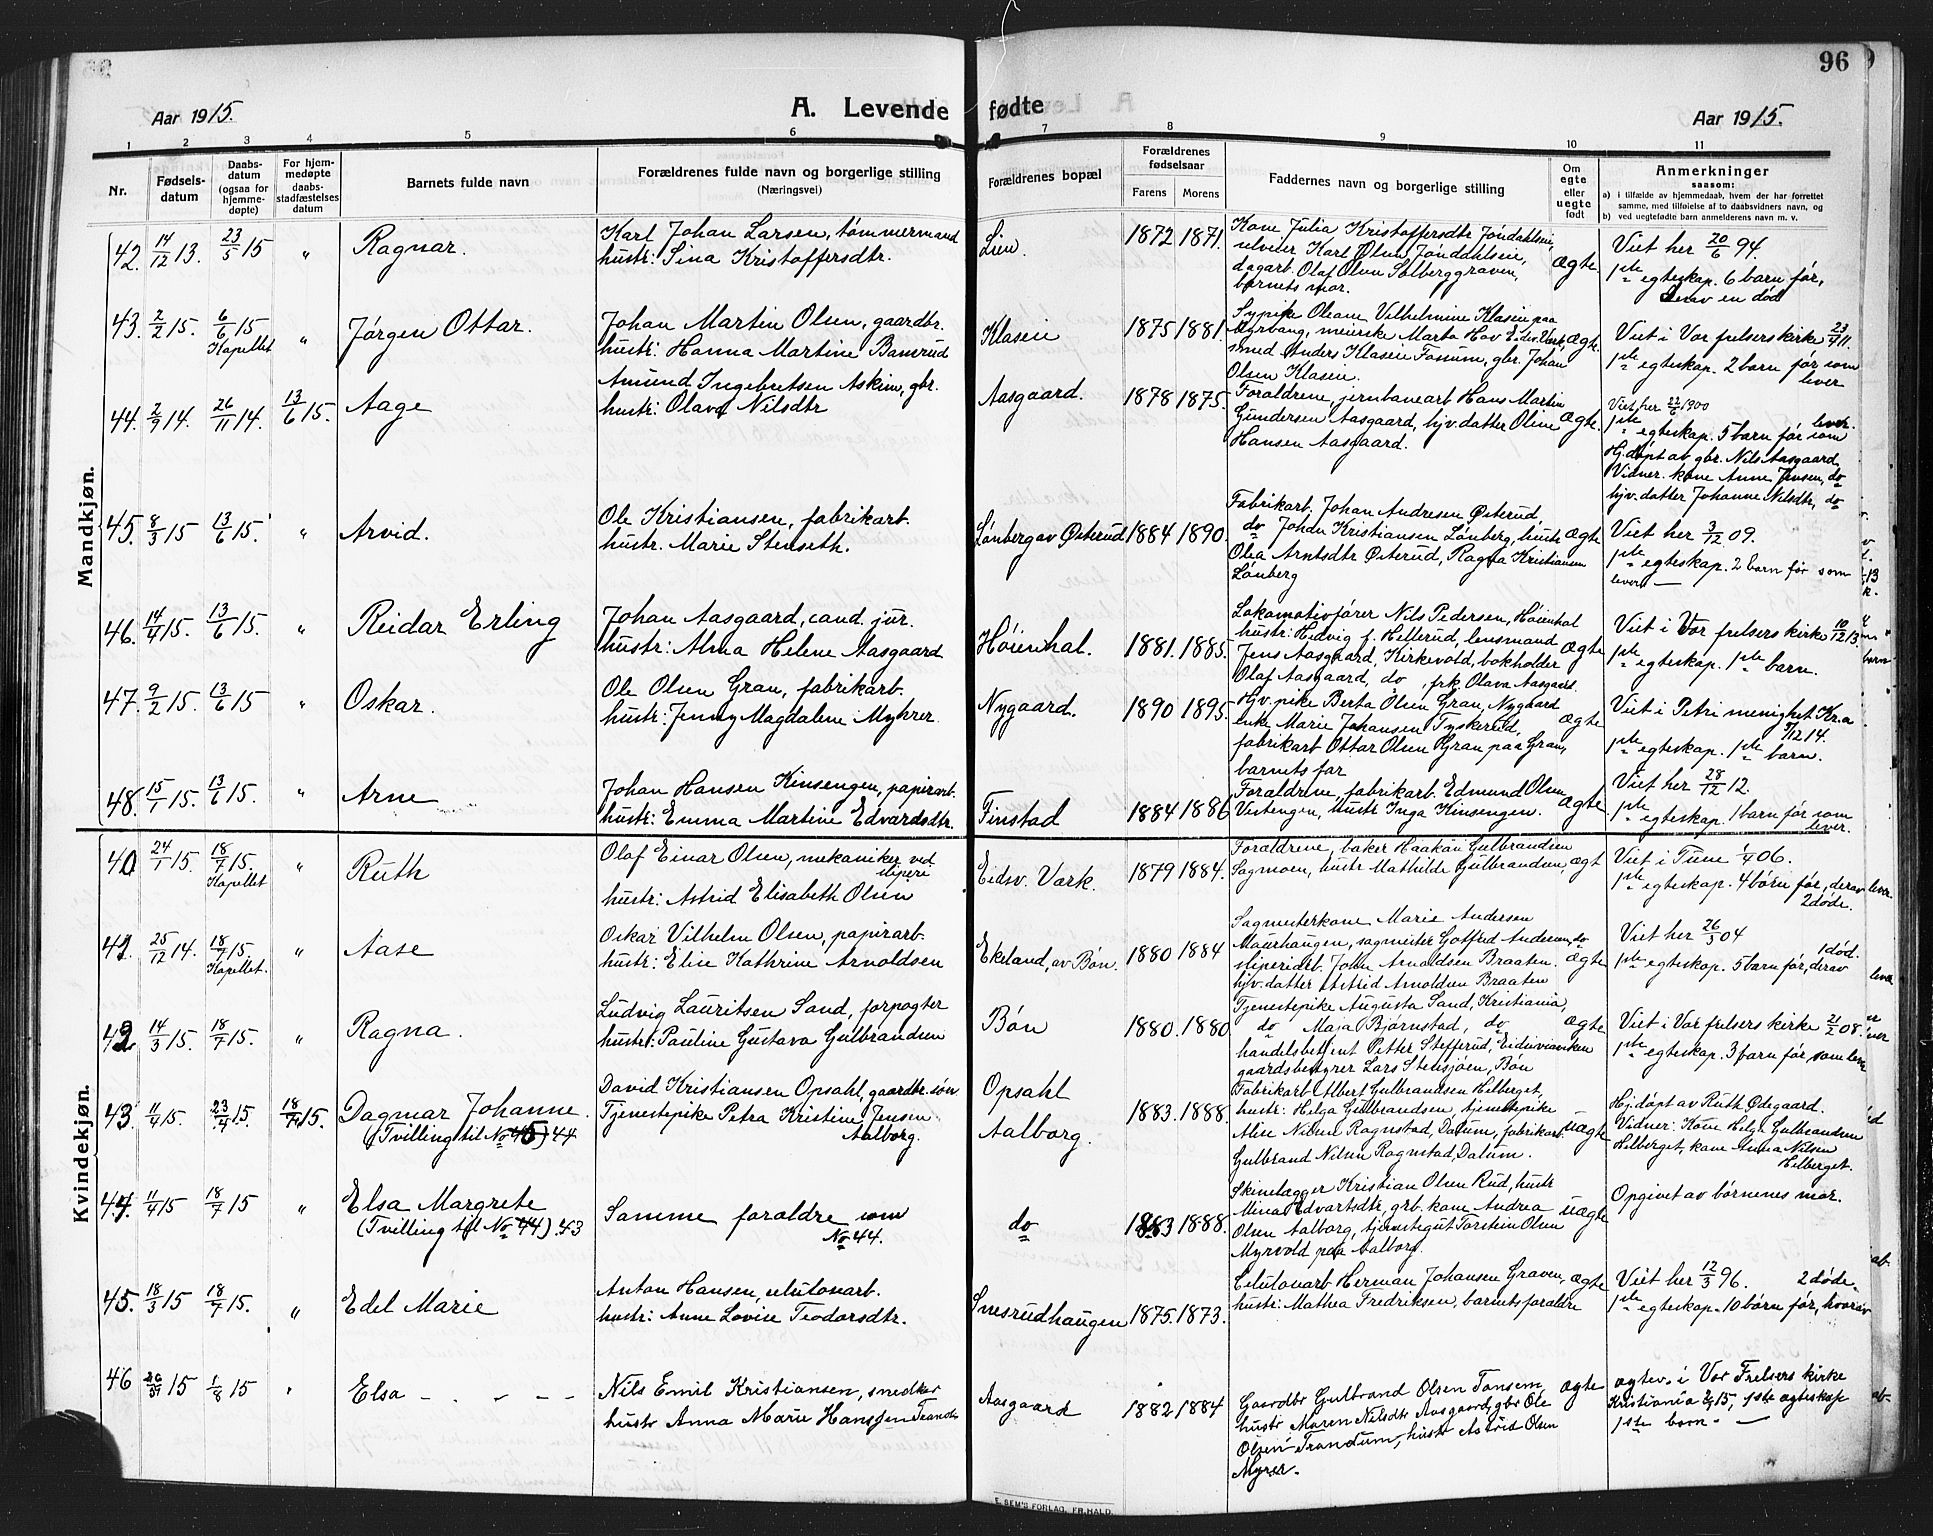 96
Aar 1915.
A. Levende fødte
Aar 1915.
1 2 3 4 5 6 7 8 9 10 11
Nr.
Fødsels-
datum
Daabs-
datum
(ogsaa for
hjemme-
døpte)
For hjem-
medøpte
daabs-
stadfæstelses
datum
Barnets fulde navn
Forældrenes fulde navn og borgerlige stilling
(Næringsvei)
Forældrenes bopæl
Forældrenes
fødselsaar
Farens Morens
Faddernes navn og borgerlige stilling
Om
egte
eller
uegte
født
Anmerkninger
saasom:
a) i tilfælde av hjemmedaab, hvem der har forrettet
samme, med tilføielse af to daabsvidners navn, og
b) ved uegtefødte barn anmelderens navn m. v.
Mandkjøn.
42. 14/12 13. 23/5 15 " Ragnar.
Karl Johan Larsen, tømmermand
hustr: Sina Kristoffersdtr.
Lien. 1872 1871.
Kone Julia Kristoffersdtr Jøndahlseie,
Karl Olsen Jønddhlseie,
dagarb. Olaf Olsen Solberggraven,
barnets mor.
Ægte.
Viet her 20/6 94.
1ste egteskap. 6 barn før,
derav en død
43. 2/2 15. 6/6 15 Kapellet " Jørgen Ottar.
Johan Martin Olsen, gaardbr.
hustr: Hanna Martine Bamrud
Klaseie 1875 1881.
Sypike Oleane Vilhelmine Klaseie paa
Myrvang, meierske Marta Hov Eidsv. Værk,
smed Anders Klaseie Fossum, gbr. Johan
Olsen Klaseie.
Ægte.
Viet i Vor frelsers kirke
1ste egteskap. 2 barn før som
lever
44. 2/9 14. 26/11 14. 13/6 15. Aage
Amund Ingebretsen Askim, gbr.
hustr: Olava Nilsdtr
Aasgaard. 1878 1875.
Foraldrene, jernbanearb Hans Martin
Gundersen Aasgaard, hjv. datter Oline
Hansen Aasgaard.
Ægte.
Viet her 22/6 1900
1ste egteskap. 5 barn før som lever.
Hj.døpt av gbr. Nils Aasgaard,
Vidner. kone Anne Jensen, do
hjv. datter Johanne Nilsdtr, do
45. 8/3 15 13/6 15. " Arvid.
Ole Kristiansen, fabrikarb.
hustr. Marie Stenseth.
Lønberg av Østerud 1884 1890.
Fabrikarb. Johan Andresen Østerud
do Johan Kristiansen Lønberg, hustr
Olea Arntsdtr Østerud, Ragna Kristiansen
Lønberg
Ægte
Viet her 3/12 09.
1ste egteskap. 2 barn før som
lever —
46. 14/4 15. 13/6 15. " Reidar Erling
Johan Aasgaard, cand. jur.
hustr: Alma Helene Aasgaard
Høienhal. 1881. 1885.
Lokomotivfører Nils Pedersen, Høienhal
hustr: Hedvig f. Hellerud, lensmand
Jens Aasgaard, Kirkevold, bokholder
Olaf Aasgaard, do, frk. Olava Aasgaard.
Ægte
Viet i Vor frelsers kirke 10/12 13.
1ste egteskap. 1ste barn.
47. 9/2 15. 13/6 15 " Oskar.
Ole Olsen Gran, fabrikarb.
hustr: Jenny Magdalene Myhrer.
Nygaard. 1890 1895.
Hjv. pike Berta Olsen Gran, Nygaard
enke Marie Johansen Tyskerud,
fabrikarb Ottar Olsen Gran paa Gran,
barnets far
Ægte
Viet i Petri menighet Kr.a
7/12 14.
1ste egteskap. 1ste barn.
48. 15/1 15. 13/6 15. " Arne
Johan Hansen Kinsengen, papirarb.
hustr: Emma Martine Edvardsdtr.
Finstad 1884 1886
Foraldrene, fabrikarb. Edmund Olsen
Vestengen, hustr Inga Kinsengen.
Ægte
Viet her 28/12 12.
1ste egteskap. 1 barn før som
lever.
Kvindekjøn.
40 24/1 15. 18/7 15. Kapellet " Ruth
Olaf Einar Olsen, mekaniker ved
sliperi
hustr: Astrid Elisabeth Olsen
Eidsv. Værk. 1879 1884.
Foraldrene, baker Haakan Gulbrandsen
Sagmoen, hustr Mathilde Gulbrandsen,
ægt
Viet i Tune 1/4 06.
1ste egteskap. 4 børn før, derav
2 døde.
41. 25/12 14. 18/7 15. Kapellet. " Aase
Oskar Vilhelm Olsen, papirarb.
hustr: Elise Kathrine Arnoldsen
Ekeland, av Bøn. 1880 1884
Sagmesterkone Marie Andersen
Maurhaugen, sagmester Gotfred Andersen, do
sliperiarb. John Arnoldsen Braaten.
hjv. datter Astrid Arnoldsen Braaten
Ægte
Viet her 26/5 04
1ste egteskap. 5 barn før, derav 1 død.
42. 14/3 15. 18/7 15. " Ragna.
Ludvig Lauritsen Sand, forpagter
hustr: Pauline Gustava Gulbrandsen
Bøn 1880. 1880
Tjenestepike Augusta Sand, Kristiania,
do Maja Bjørnstad, do
handelsbetjent Petter Stefferud, Eidsvianeren
gaardsbestyrer Lars Stensjøen, Bøn
Ægte
Viet i Vor frelsers kirke 21/2 08.
1ste egteskap. 3 barn før, som leve
43. 11/4 15. 23/4 15. 18/7 15. Dagmar Johanne.
(Tvilling til No 45) 44
David Kristiansen Opsahl, gaardbr. søn
Tjenestepike Petra Kristine Jensen
Aalborg.
Opsahl
Aalborg. 1883. 1888.
Fabrikarb. Albert Gulbrandsen Helberget,
hustr: Helga Gulbrandsen, tjenestepike
Alise Nilsen Ragnstad, Dalum, fabrikarb.
Gulbrand Nilsen Ragnstad, Dalum.
uægte
Hj.døpt av Ruth Ødegaard.
Vidner: Kone Helga Gulbrandsen
Helberget, kone Anna Nilsen
Helberget.
44. 11/4 15 18/7 15 " Elsa Margrete
(Tvilling til No 44). 43
Samme foraldre som
No 44.
do 1883 1888.
Skinelægger Kristian Olsen Rud, hustr
Mina Edvartsdtr, grb. kone Andrea
Olsen Aalborg, tjenestegut Torstein Olsen
Myrvold paa Aalborg.
uægte
Opgivet av børnenes mor.
45. 18/3 15 18/7 15. " Edel Marie
Anton Hansen, celulosarb.
hustr: Anne Lovise Teodorsdtr.
Snesrudhaugen 1875. 1873.
Celulosarb Herman Johansen Graven,
hustr: Mathea Fredriksen, barnets foraldre
ægte
Viet her 12/3 96. 2 døde.
1ste egteskap. 10 børn før, hvorav
46 15 1/8 15 " Elsa - - - -
Nils Emil Kristiansen, smedker
hustr Anna Marie Hanssen Trandem
Aasgaard 1882 1884
Gaardbr Gulbrand Olsen Tansem,
hustr Maren Nilsdtr Aasgaard, gbr Ole
Olsen Trandum, hustr Astrid Olsen
Myrer.
ægte
ægtev. i Vor Frelsers kirke
Kristiania 15, 1ste ægteskap
1ste barn. —
E. SEM'S FORLAG, FR.HALD.